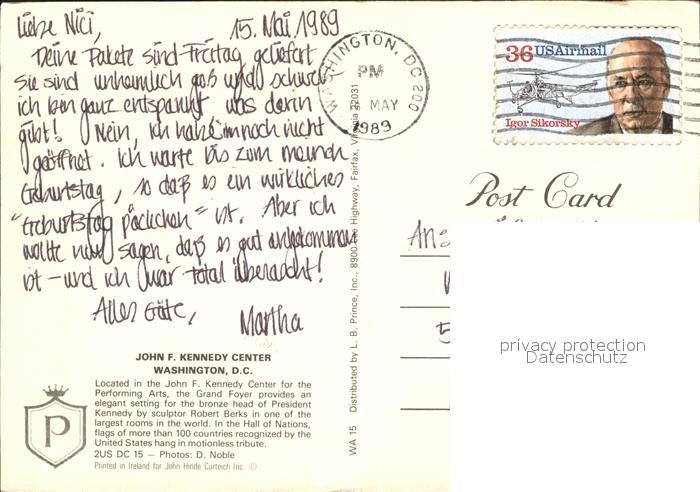 Liebe Nici,
15. Mai 1989
Deine Pakete sind Freitag geliefert
Sie sind unheimlich groß und schwer
ich bin ganz entspannt was darin
gibt! Nein, ich habe noch nicht
geöffnet. Ich warte bis zum
Geburtstag, so daß es ein wirkliches
"Geburtstag päckchen" ist. Aber ich
wollte nur sagen, daß es gut angekommen
ist - und ich war total überrascht!
Alles Gute,
Martha
WASHINGTON, DC 200
PM
MAY
1989
36 USAirmail
Igor Sikorsky
Post Card
privacy protection
Datenschutz
JOHN F. KENNEDY CENTER
WASHINGTON, D.C.
Located in the John F. Kennedy Center for the
Performing Arts, the Grand Foyer provides an
elegant setting for the bronze head of President
Kennedy by sculptor Robert Berks in one of the
largest rooms in the world. In the Hall of Nations,
flags of more than 100 countries recognized by the
United States hang in motionless tribute.
2US DC 15 – Photos: D. Noble
Printed in Ireland for John Hinde Curteich Inc. ©
P
WA 15 Distributed by L. B. Prince, Inc., 8900 Lee Highway, Fairfax, Virginia 22031